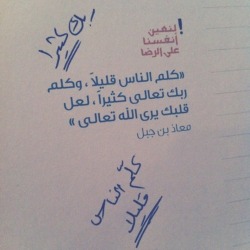 ربك كثيرا
لتعين
أنفسنا
على الرضا
!
«كلم الناس قليلاً ، وكلم
ربك تعالى كثيراً ، لعل
قلبك يرى الله تعالى »
معاذ بن جبل
كلّم الناس
قليلا